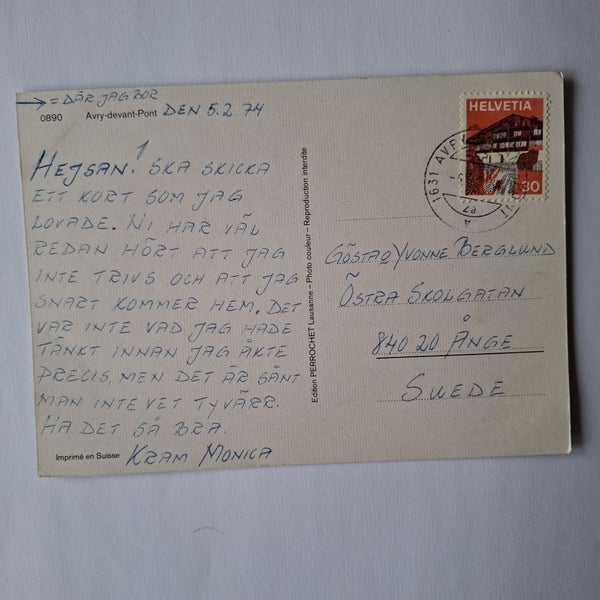 → = DÄR JAG BOR
0890 Avry-devant-Pont DEN 5.2 74
HEJSAN! SKA SKICKA
ETT KORT SOM JAG
LOVADE. NI HAR VÄL
REDAN HÖRT ATT JAG
INTE TRIVS OCH ATT JAG
SNART KOMMER HEM. DET
VAR INTE VAD JAG HADE
TÄNKT INNAN JAG ÅKTE
PRECIS, MEN DET ÄR SÅNT
MAN INTE VET TYVÄRR.
HA DET SÅ BRA.
KRAM MONICA
Imprimé en Suisse
Edition PERROCHET Lausanne – Photo couleur – Reproduction interdite
HELVETIA
30
1631
GÖSTA & YVONNE BERGLUND
ÖSTRA SKOLGATAN
840 20 ÅNGE
SWEDE